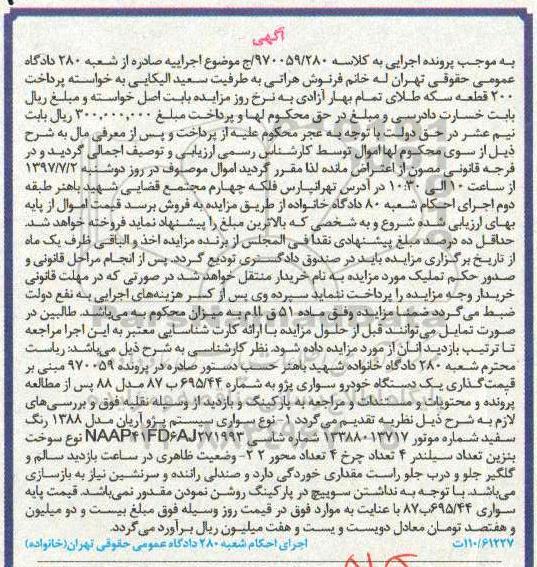 آگهی
به موجب پرونده اجرایی به کلاسه ۹۷۰۰۵۹/۲۸۰/ج موضوع اجراییه صادره از شعبه ۲۸۰ دادگاه
عمومی حقوقی تهران له خانم فرنوش هراتی به طرفیت سعید الیکایی به خواسته پرداخت
۲۰۰ قطعه سکه طلای تمام بهار آزادی به نرخ روز مزایده بابت اصل خواسته و مبلغ ریال
بابت خسارت دادرسی و مبلغ در حق محکوم لها و پرداخت مبلغ ۳۰۰,۰۰۰,۰۰۰ ریال بابت
نیم عشر در حق دولت با توجه به عجز محکوم علیه از پرداخت و پس از معرفی مال به شرح
ذیل از سوی محکوم لها اموال توسط کارشناس رسمی ارزیابی و توصیف اجمالی گردید و در
فرجه قانونی مصون از اعتراض مانده لذا مقرر گردید اموال موصوف در روز دوشنبه ۱۳۹۷/۷/۲
از ساعت ۱۰ الی ۱۰:۳۰ در آدرس تهرانپارس فلکه چهارم مجتمع قضایی شهید باهنر طبقه
دوم اجرای احکام شعبه ۸۰ دادگاه خانواده از طریق مزایده به فروش برسد قیمت اموال از پایه
بهای ارزیابی شده شروع و به شخصی که بالاترین مبلغ را پیشنهاد نماید فروخته خواهد شد.
حداقل ده درصد مبلغ پیشنهادی نقدا فی المجلس از برنده مزایده اخذ و الباقی ظرف یک ماه
از تاریخ برگزاری مزایده باید در صندوق دادگستری تودیع گردد. پس از انجام مراحل قانونی و
صدور حکم تملیک مورد مزایده به نام خریدار منتقل خواهد شد در صورتی که در مهلت قانونی
خریدار وجه مزایده را پرداخت ننماید سپرده وی پس از کسر هزینه‌های اجرایی به نفع دولت
ضبط می‌گردد ضمنا مزایده وفق ماده ۵۱ ق.ا.م به میزان محکوم به می‌باشد. طالبین در
صورت تمایل می‌توانند قبل از حلول مزایده با ارائه کارت شناسایی معتبر به این اجرا مراجعه
تا ترتیب بازدید آنان از مورد مزایده داده شود. نظر کارشناسی به شرح ذیل می‌باشد: ریاست
محترم شعبه ۲۸۰ دادگاه خانواده شهید باهنر حسب دستور صادره در پرونده ۹۷۰۰۵۹ مبنی بر
قیمت‌گذاری یک دستگاه خودرو سواری پژو به شماره ۶۹۵/۴۴ ب ۸۷ مدل ۸۸ پس از مطالعه
پرونده و محتویات و مستندات و مراجعه به پارکینگ و بازدید از وسیله نقلیه فوق و بررسی‌های
لازم به شرح ذیل نظریه تقدیم می‌گردد ۱- نوع سواری سیستم پژو آریان مدل ۱۳۸۸ رنگ
سفید شماره موتور ۱۳۳۸۸۰۱۳۷۱۷ شماره شاسی NAAP۴۱FD۶AJ۲۱۱۹۹۳ نوع سوخت
بنزین تعداد سیلندر ۴ تعداد چرخ ۴ تعداد محور ۲ ۲- وضعیت ظاهری در ساعت بازدید سالم و
گلگیر جلو و درب جلو راست مقداری خوردگی دارد و صندلی راننده و سرنشین نیاز به بازسازی
می‌باشد. با توجه به نداشتن سوییچ در پارکینگ روشن نمودن مقدور نمی‌باشد. قیمت پایه
سواری ۶۹۵/۴۴ب۸۷ با عنایت به موارد فوق در قیمت روز وسیله فوق مبلغ بیست و دو میلیون
و هفتصد تومان معادل دویست و بست و هفت میلیون ریال برآورد می‌گردد.
۱۱۰/۶۱۲۲۷ت اجرای احکام شعبه ۲۸۰ دادگاه عمومی حقوقی تهران(خانواده)